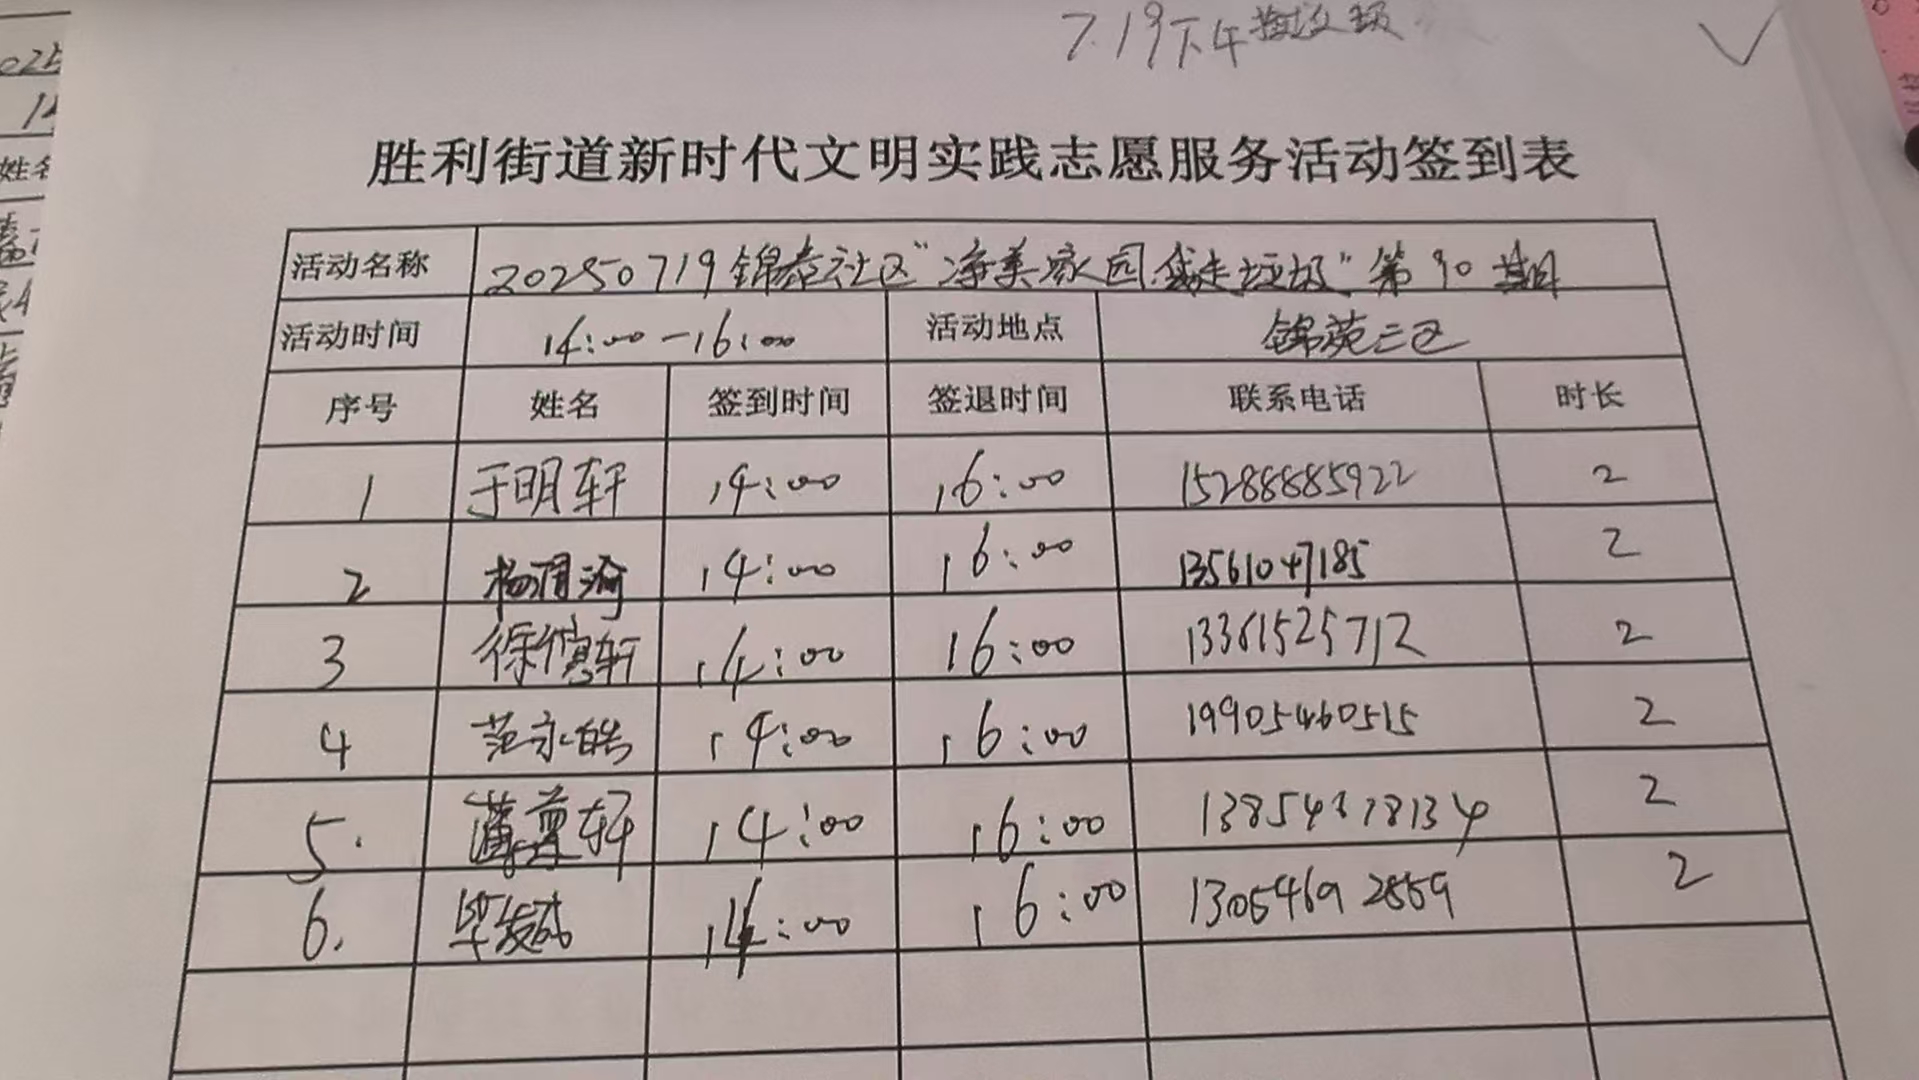 7.19下午
胜利街道新时代文明实践志愿服务活动签到表
活动名称 20250719锦泰社区"净美家园 袋走垃圾"第90期
活动时间 14:00-16:00 活动地点 锦苑三区
序号 姓名 签到时间 签退时间 联系电话 时长
1 于明轩 14:00 16:00 15288885922 2
2 14:00 16:00 13561047185 2
3 14:00 16:00 13361525712 2
4 范永皓 14:00 16:00 19905460515 2
5. 14:00 16:00 2
6. 14:00 16:00 2
姓名